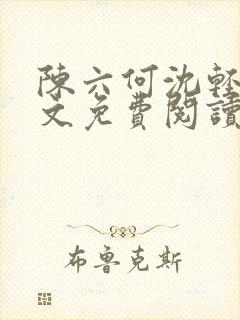 陳六何沈輕
文免費閱讀
布魯克斯